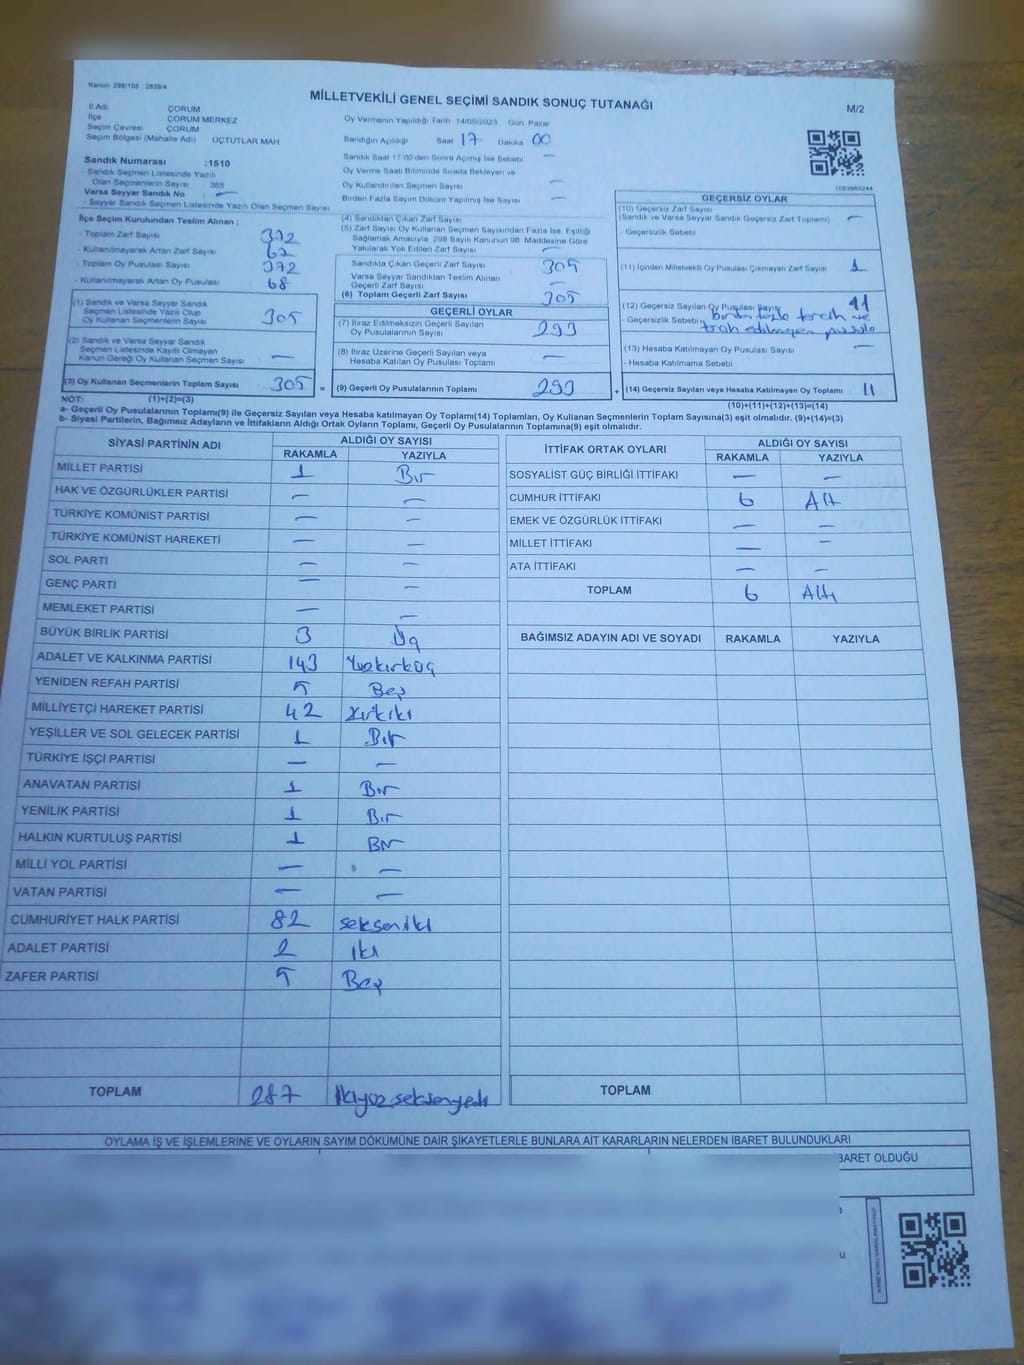 Kanun: 298/105 , 2839/4
MİLLETVEKİLİ GENEL SEÇİMİ SANDIK SONUÇ TUTANAĞI
M/2
İl Adı ÇORUM
İlçe ÇORUM MERKEZ
Seçim Çevresi ÇORUM
Seçim Bölgesi (Mahalle Adı) ÜÇTUTLAR MAH
Sandık Numarası :1510
- Sandık Seçmen Listesinde Yazılı
Olan Seçmenlerin Sayısı 365
Varsa Seyyar Sandık No —
- Seyyar Sandık Seçmen Listesinde Yazılı Olan Seçmen Sayısı
Oy Vermenin Yapıldığı Tarih 14/05/2023 Gün Pazar
Sandığın Açıldığı Saat 17 Dakika 00
Sandık Saat 17.00'den Sonra Açılmış İse Sebebi —
Oy Verme Saati Bitiminde Sırada Bekleyen ve
Oy Kullandırılan Seçmen Sayısı —
Birden Fazla Sayım Döküm Yapılmış İse Sayısı —
1083663244
İlçe Seçim Kurulundan Teslim Alınan :
- Toplam Zarf Sayısı 372
- Kullanılmayarak Artan Zarf Sayısı 67
- Toplam Oy Pusulası Sayısı 372
- Kullanılmayarak Artan Oy Pusulası 68
(1) Sandık ve Varsa Seyyar Sandık
Seçmen Listesinde Yazılı Olup
Oy Kullanan Seçmenlerin Sayısı 305
(2) Sandık ve Varsa Seyyar Sandık
Seçmen Listesinde Kayıtlı Olmayan
Kanun Gereği Oy Kullanan Seçmen Sayısı —
(3) Oy Kullanan Seçmenlerin Toplam Sayısı 305 =
(4) Sandıktan Çıkan Zarf Sayısı
(5) Zarf Sayısı Oy Kullanan Seçmen Sayısından Fazla İse, Eşitliği
Sağlamak Amacıyla 298 Sayılı Kanunun 98. Maddesine Göre
Yakılarak Yok Edilen Zarf Sayısı —
Sandıkta Çıkan Geçerli Zarf Sayısı 305
Varsa Seyyar Sandıktan Teslim Alınan
Geçerli Zarf Sayısı —
(6) Toplam Geçerli Zarf Sayısı 305
GEÇERLİ OYLAR
(7) İtiraz Edilmeksizin Geçerli Sayılan
Oy Pusulalarının Sayısı 293
(8) İtiraz Üzerine Geçerli Sayılan veya
Hesaba Katılan Oy Pusulası Toplamı —
(9) Geçerli Oy Pusulalarının Toplamı 293 +
GEÇERSİZ OYLAR
(10) Geçersiz Zarf Sayısı
(Sandık ve Varsa Seyyar Sandık Geçersiz Zarf Toplamı) —
Geçersizlik Sebebi
(11) İçinden Milletvekili Oy Pusulası Çıkmayan Zarf Sayısı 1
(12) Geçersiz Sayılan Oy Pusulası Sayısı 11
- Geçersizlik Sebebi birden fazla tercih ve
tercih edilmeyen pusula
(13) Hesaba Katılmayan Oy Pusulası Sayısı —
- Hesaba Katılmama Sebebi
(14) Geçersiz Sayılan veya Hesaba Katılmayan Oy Toplamı 11
NOT: (1)+(2)=(3)
(10)+(11)+(12)+(13)=(14)
a- Geçerli Oy Pusulalarının Toplamı(9) ile Geçersiz Sayılan veya Hesaba katılmayan Oy Toplamı(14) Toplamları, Oy Kullanan Seçmenlerin Toplam Sayısına(3) eşit olmalıdır. (9)+(14)=(3)
b- Siyasi Partilerin, Bağımsız Adayların ve İttifakların Aldığı Ortak Oyların Toplamı, Geçerli Oy Pusulalarının Toplamına(9) eşit olmalıdır.
SİYASİ PARTİNİN ADI ALDIĞI OY SAYISI
RAKAMLA YAZIYLA
MİLLET PARTİSİ 1 Bir
HAK VE ÖZGÜRLÜKLER PARTİSİ — —
TÜRKİYE KOMÜNİST PARTİSİ — —
TÜRKİYE KOMÜNİST HAREKETİ — —
SOL PARTİ — —
GENÇ PARTİ — —
MEMLEKET PARTİSİ — —
BÜYÜK BİRLİK PARTİSİ 3 Üç
ADALET VE KALKINMA PARTİSİ 143 Yüzkırküç
YENİDEN REFAH PARTİSİ 5 Beş
MİLLİYETÇİ HAREKET PARTİSİ 42 Kırkiki
YEŞİLLER VE SOL GELECEK PARTİSİ 1 Bir
TÜRKİYE İŞÇİ PARTİSİ — —
ANAVATAN PARTİSİ 1 Bir
YENİLİK PARTİSİ 1 Bir
HALKIN KURTULUŞ PARTİSİ 1 Bir
MİLLİ YOL PARTİSİ — —
VATAN PARTİSİ — —
CUMHURİYET HALK PARTİSİ 82 seksen iki
ADALET PARTİSİ 2 iki
ZAFER PARTİSİ 5 Beş
TOPLAM 287 ikiyüz seksenyedi
İTTİFAK ORTAK OYLARI ALDIĞI OY SAYISI
RAKAMLA YAZIYLA
SOSYALİST GÜÇ BİRLİĞİ İTTİFAKI — —
CUMHUR İTTİFAKI 6 Altı
EMEK VE ÖZGÜRLÜK İTTİFAKI — —
MİLLET İTTİFAKI — —
ATA İTTİFAKI — —
TOPLAM 6 Altı
BAĞIMSIZ ADAYIN ADI VE SOYADI RAKAMLA YAZIYLA
TOPLAM
OYLAMA İŞ VE İŞLEMLERİNE VE OYLARIN SAYIM DÖKÜMÜNE DAİR ŞİKAYETLERLE BUNLARA AİT KARARLARIN NELERDEN İBARET BULUNDUKLARI
BARET OLDUĞU